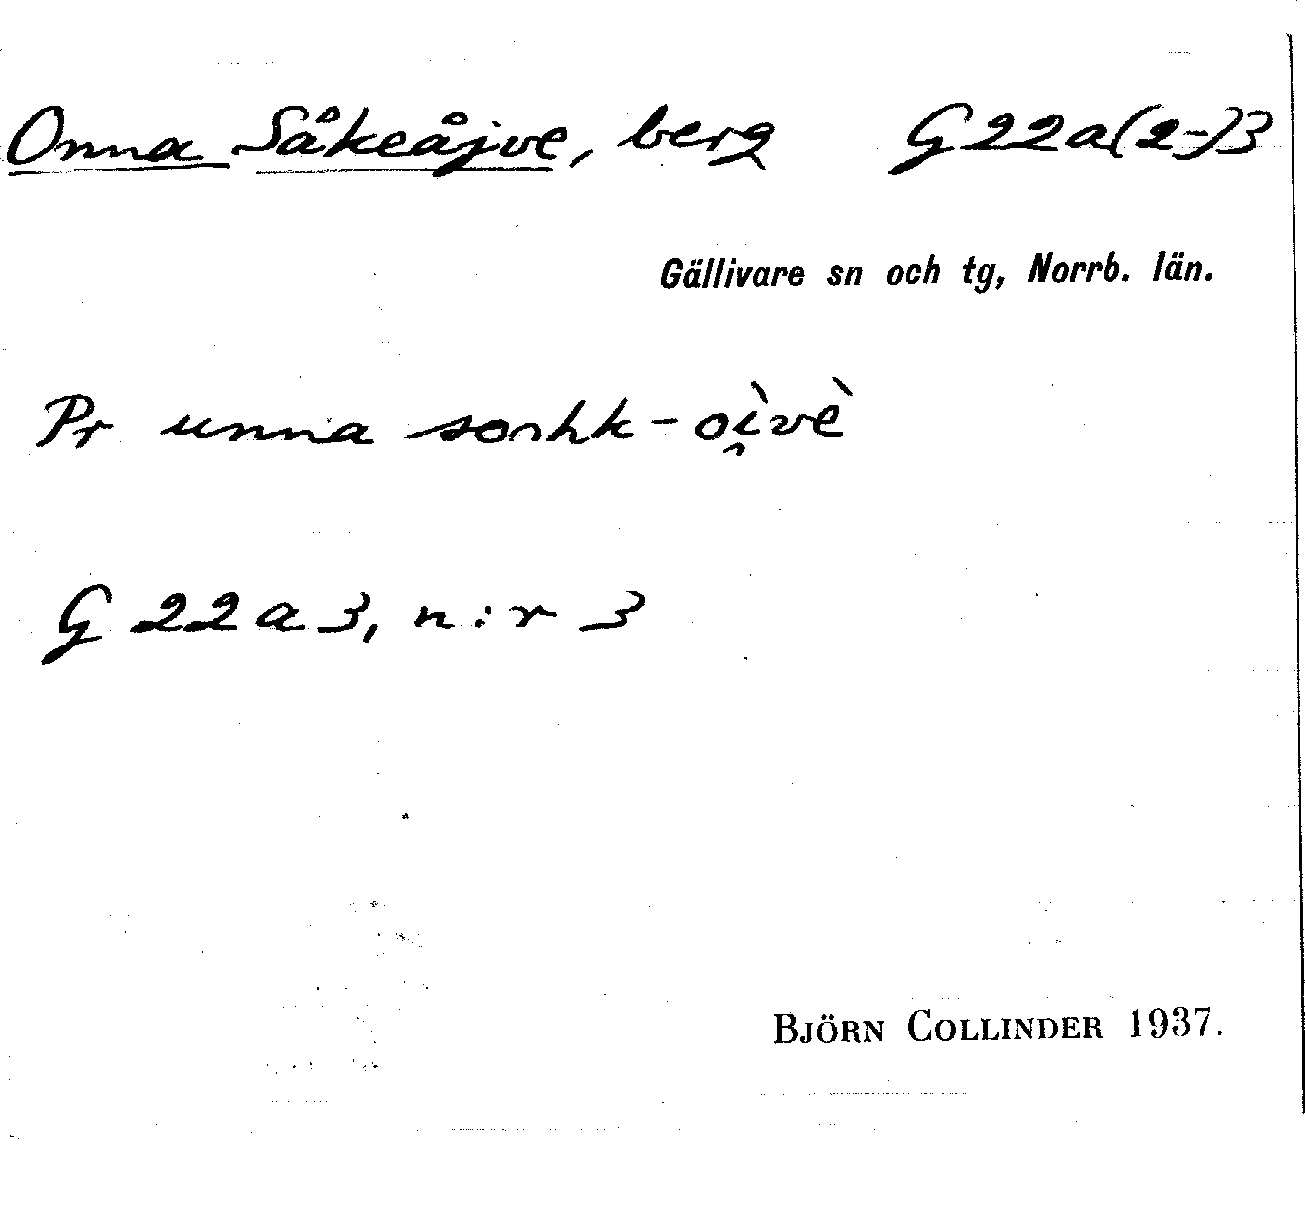 Onna Såkeåjve, berg G22a(2-)3
Gällivare sn och tg, Norrb. län.
Pr unna sonhk-oì̯vè
G22a3, n:r 3
BJÖRN COLLINDER 1937.